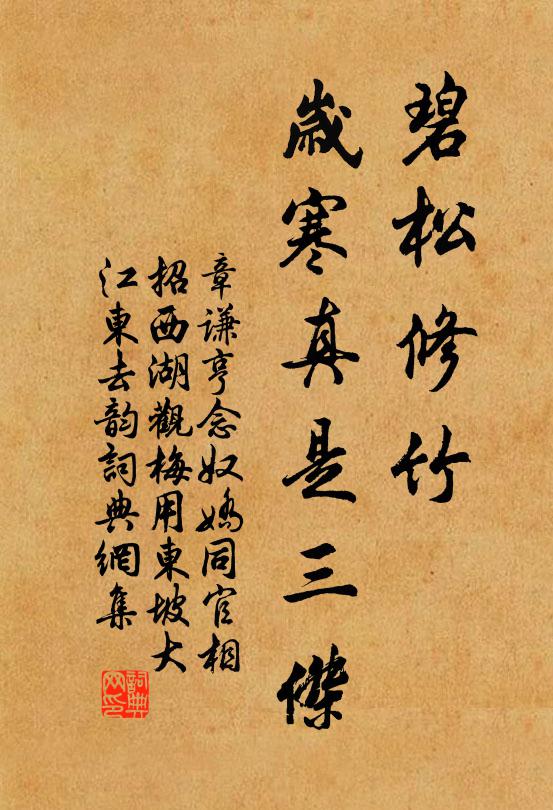 碧松修竹
歲寒真是三傑
章謙亨念奴嬌同官相
招西湖觀梅用東坡大
江東去韵詞典網集
詞典网印